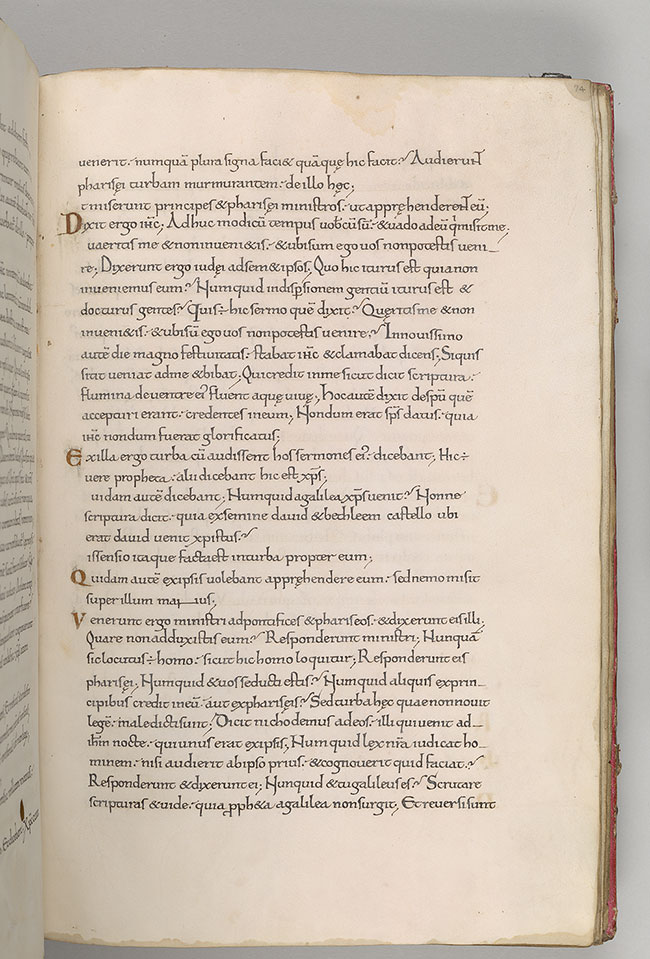 74
venerit. numquā plura signa faci& quāquę hic facit? Audierunt
pharisęi turbam murmurantem. de illo hęc;
t miserunt principes & pharisęi ministros. ut apprehenderent eū;
Dixit ergo ihc; Adhuc modicū tempus vobcū sū. & vado ad eū q̄ misit me;
uaeritis me & non inveni&is. & ubi sum ego vos non potestis veni
re; Dixerunt ergo iudęi ad sem&ipsos; Quo hic iturus est quia non
inveniemus eum? Numquid in dispsionem gentiū iturus est &
docturus gentes? Quis ÷ hic sermo quē dixit? Quęritis me & non
inveni&is. & ubi sū ego vos non potestis venire? In novissimo
autē die magno festivitatis. stabat ihc & clamabat dicens; Siquis
sitit veniat ad me & bibat; Qui credit in me sicut dicit scriptura.
flumina de ventre ei' fluent aquę vivę; Hoc autē dixit de spū quē
accepturi erant. credentes in eum; Nondum erat sps datus. quia
ihc nondum fuerat glorificatus;
Ex illa ergo turba cū audissent hos sermones ei'. dicebant; Hic ÷
vere propheta. alii dicebant hic est xps;
uidam autē dicebant; Numquid a galilea xps venit? Nonne
scriptura dicit. quia ex semine david & bethleem castello ubi
erat david venit xpistus?
issensio itaque facta est in turba propter eum;
Quidam autē ex ipsis volebant apprehendere eum. sed nemo misit
super illum manus;
Venerunt ergo ministri ad pontifices & phariseos. & dixerunt eis illi;
Quare non adduxistis eum? Responderunt ministri; Nunquā
sic locutus ÷ homo. sicut hic homo loquitur; Responderunt eis
pharisęi; Numquid & vos seducti estis? Numquid aliquis ex prin
cipibus credit in eū. aut ex pharisęis? Sed turba hęc quae non novit
legē. maledicti sunt; Dicit nichodemus ad eos. ille qui venit ad
ihm nocte. qui unus erat ex ipsis; Numquid lex nra iudicat ho
minem. nisi audierit ab ipso prius. & cognoverit quid faciat?
Responderunt & dixerunt ei; Nunquid & tu galileus es? Scrutare
scripturas & vide. quia pph&a a galilea non surgit; Et reversi sunt